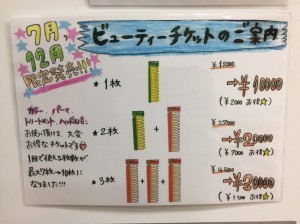 7月、
12月
限定発売!!!
ビューティーチケットのご案内
カラー、パーマ
トリートメント、ヘッドスパに
お使い頂けます、大変
お得なチケットです
1回で使える枚数が
最大7枚→10枚に
なりました!!!
*1枚
¥12000
→¥10000
(¥2000 お得☆)
*2枚
+
¥27000
→¥20000
(¥7000 お得☆)
*3枚
+ +
→¥30000
お得☆)